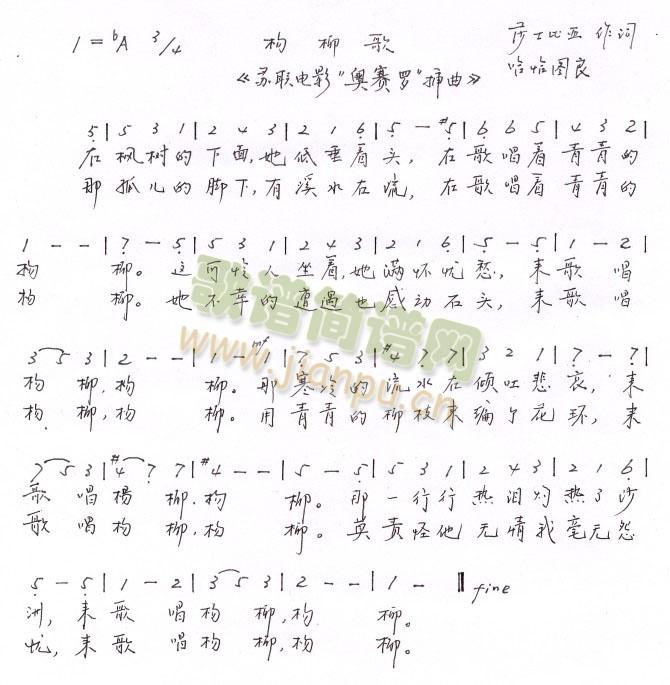 1=ᵇA 3/4 杨柳歌 莎士比亚 作词
《苏联电影"奥赛罗"插曲》 哈恰图良
5̣ | 5 3 1 | 2 4 3 | 2 1 6̣ | 5̣ - #5̣ | 6̣ 6 5 | 4 3 2 |
在 枫树的 下面,她 低垂着 头, 在 歌唱着 青青的
那 孤儿的 脚下,有 溪水在 流, 在 歌唱着 青青的
1 - - | 7̣ - 5̣ | 5 3 1 | 2 4 3 | 2 1 6̣ | 5̣ - 5̣ | 1 - 2 |
杨 柳。 这 可怜人 坐着,她 满怀忧 愁, 来 歌 唱
杨 柳。 她 不幸的 遭遇也 感动石 头, 来 歌 唱
3 5 3 | 2 - - | 1 - mf 1 | 7̣ 5 3 | #4 7 7 | 3 2 1 | 7̣ - 7̣ |
杨 柳,杨 柳。 那 寒冷的 流水在 倾吐悲 哀, 来
杨 柳,杨 柳。 用 青青的 柳枝来 编个花 环, 来
歌谱简谱网
www.jianpu.cn
7 5 3 | #4 7 7 | #4 - - | 5 - 5 | 5 3 1 | 2 4 3 | 2 1 6̣ |
歌 唱 楊 柳,杨 柳。 那 一行行 热泪灼 热了沙
歌 唱 杨 柳,杨 柳。 莫 责怪他 无情我 毫无怨
5̣ - 5̣ | 1 - 2 | 3 5 3 | 2 - - | 1 - ‖ fine
洲, 来 歌 唱 杨 柳,杨 柳。
忧, 来 歌 唱 杨 柳,杨 柳。